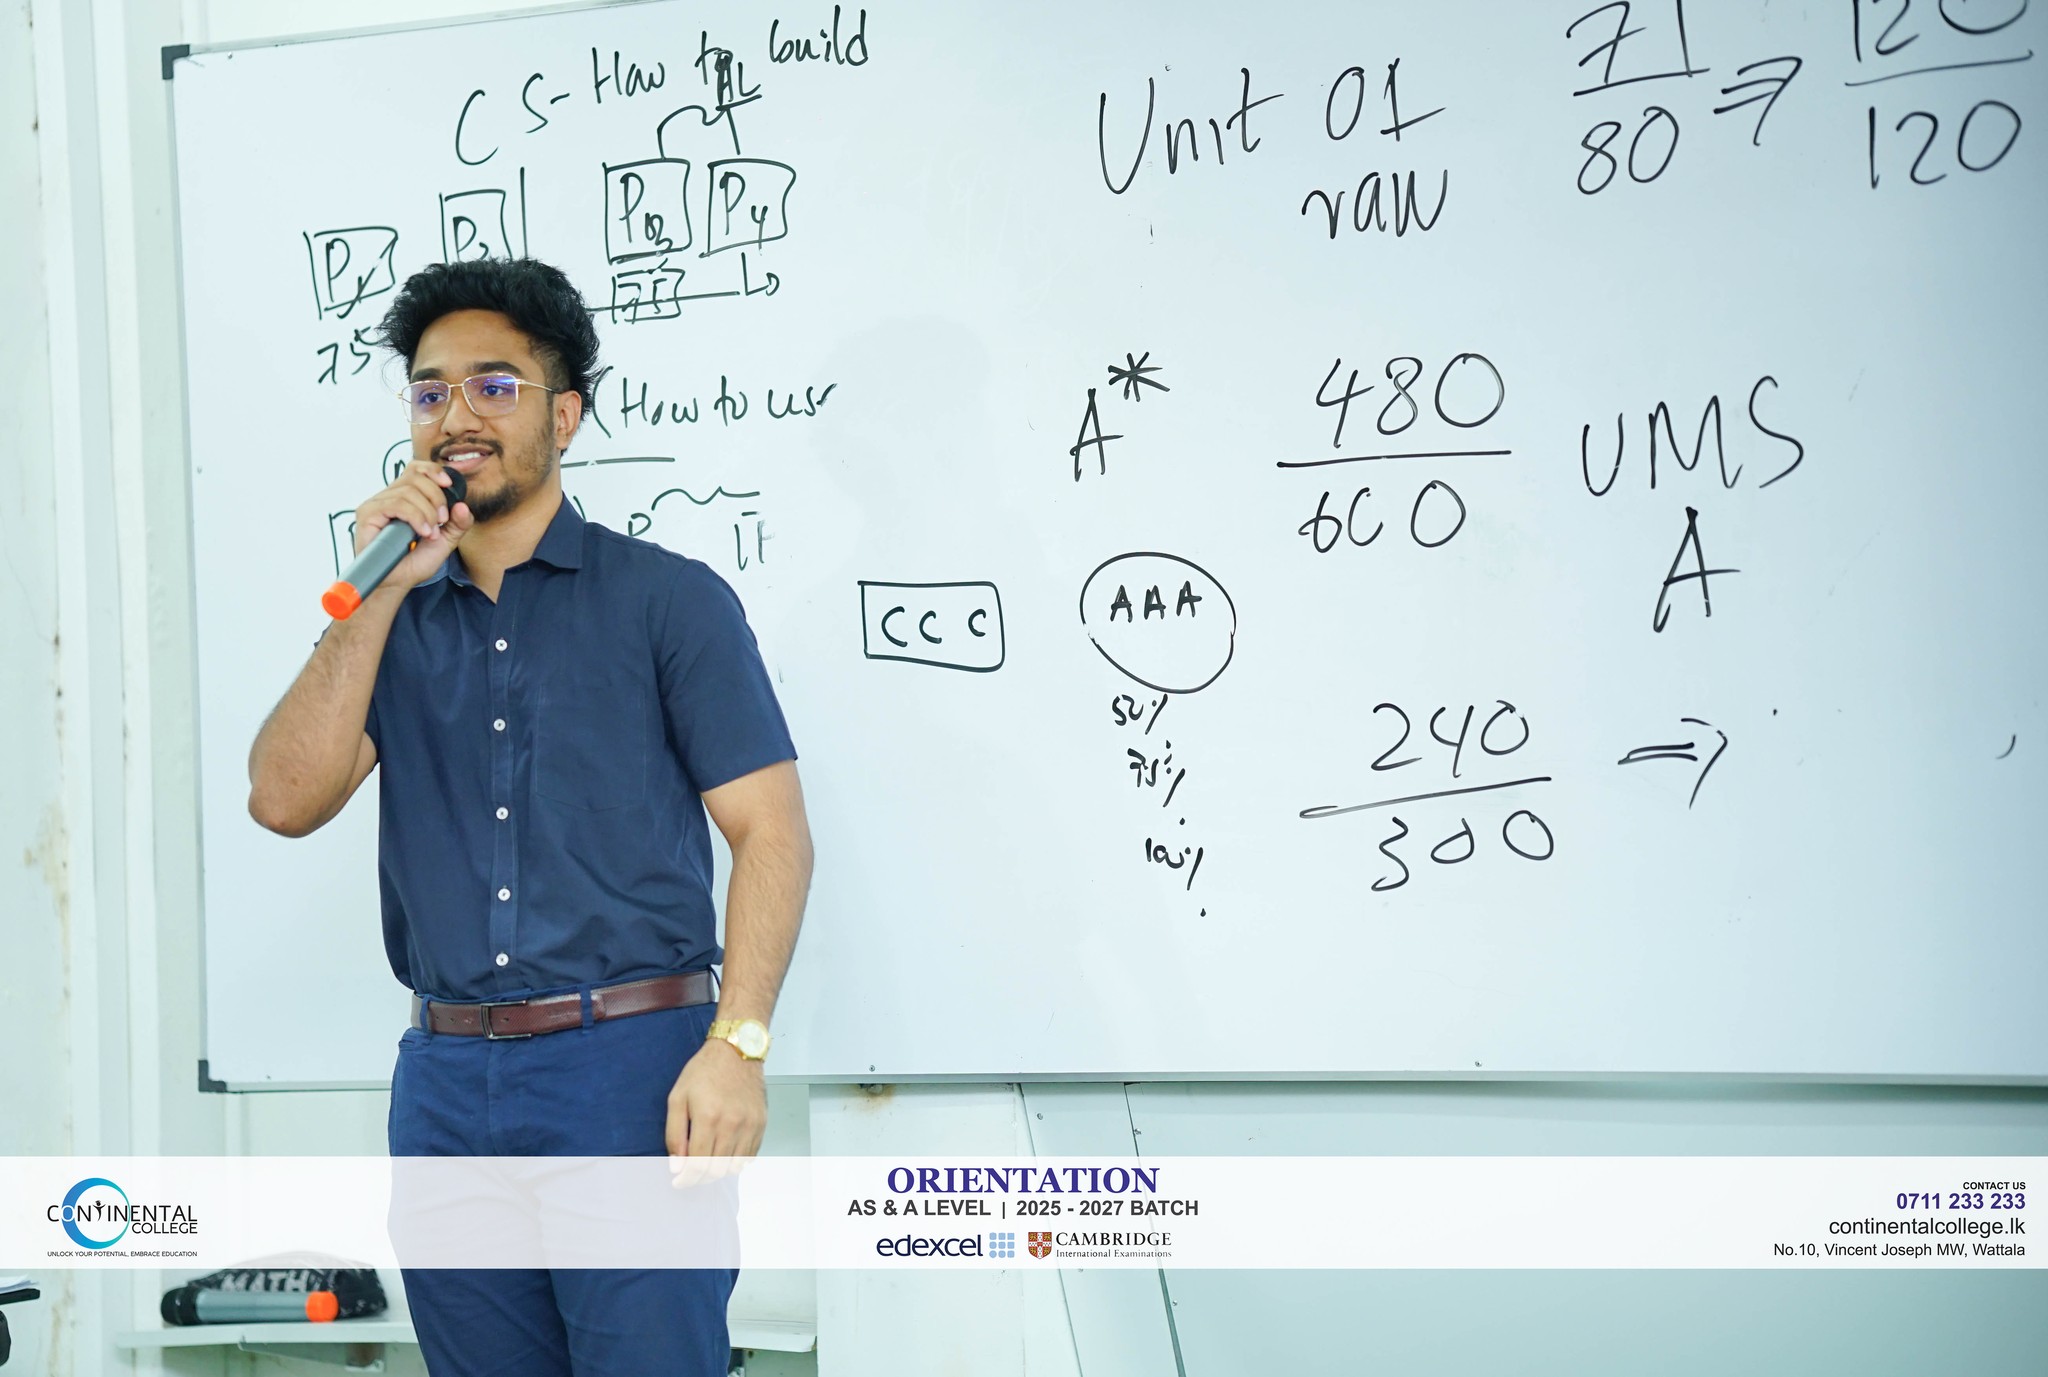 CS - How to build
AL
P1
P2
P3
P4
75
75
(How to use
P
IF
Unit 01
raw
71
80
⇒
120
120
A*
480
600
UMS
A
CCC
AAA
50%
75%
100%
240
300
⇒
MATH
CONTINENTAL
COLLEGE
UNLOCK YOUR POTENTIAL, EMBRACE EDUCATION
ORIENTATION
AS & A LEVEL | 2025 - 2027 BATCH
edexcel
CAMBRIDGE
International Examinations
CONTACT US
0711 233 233
continentalcollege.lk
No.10, Vincent Joseph MW, Wattala